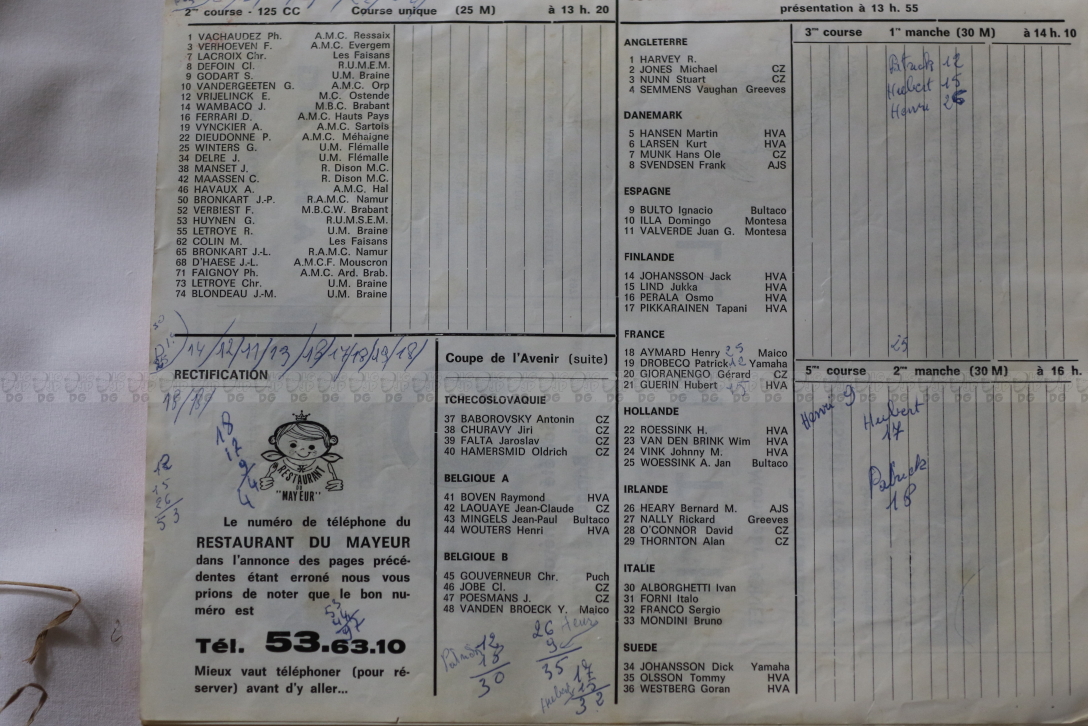 2me course - 125 CC Course unique (25 M) à 13 h. 20
1 VACHAUDEZ Ph. A.M.C. Ressaix
3 VERHOEVEN F. A.M.C. Evergem
7 LACROIX Chr. Les Faisans
8 DEFOIN Cl. R.U.M.E.M.
9 GODART S. U.M. Braine
10 VANDERGEETEN G. A.M.C. Orp
12 VRIJELINCK E. M.C. Ostende
14 WAMBACQ J. M.B.C. Brabant
16 FERRARI D. A.M.C. Hauts Pays
19 VYNCKIER A. A.M.C. Sartois
22 DIEUDONNE P. A.M.C. Méhaigne
25 WINTERS G. U.M. Flémalle
34 DELRE J. U.M. Flémalle
38 MANSET J. R. Dison M.C.
42 MAASSEN C. R. Dison M.C.
46 HAVAUX A. A.M.C. Hal
50 BRONKART J.-P. R.A.M.C. Namur
52 VERBIEST F. M.B.C.W. Brabant
53 HUYNEN G. R.U.M.S.E.M.
55 LETROYE R. U.M. Braine
62 COLIN M. Les Faisans
65 BRONKART J.-L. R.A.M.C. Namur
68 D'HAESE J.-L. A.M.C.F. Mouscron
71 FAIGNOY Ph. A.M.C. Ard. Brab.
73 LETROYE Chr. U.M. Braine
74 BLONDEAU J.-M. U.M. Braine
RECTIFICATION
18
12
9
4
4
12
15
26
53
RESTAURANT
DU
"MAYEUR"
Le numéro de téléphone du
RESTAURANT DU MAYEUR
dans l'annonce des pages précé-
dentes étant erroné nous vous
prions de noter que le bon nu-
méro est
53
44
97
Tél. 53.63.10
Mieux vaut téléphoner (pour ré-
server) avant d'y aller...
Coupe de l'Avenir (suite)
TCHECOSLOVAQUIE
37 BABOROVSKY Antonin CZ
38 CHURAVY Jiri CZ
39 FALTA Jaroslav CZ
40 HAMERSMID Oldrich CZ
BELGIQUE A
41 BOVEN Raymond HVA
42 LAQUAYE Jean-Claude CZ
43 MINGELS Jean-Paul Bultaco
44 WOUTERS Henri HVA
BELGIQUE B
45 GOUVERNEUR Chr. Puch
46 JOBE Cl. CZ
47 POESMANS J. CZ
48 VANDEN BROECK Y. Maico
12
18
30
26
9
35
17
15
32
présentation à 13 h. 55
ANGLETERRE
1 HARVEY R.
2 JONES Michael CZ
3 NUNN Stuart CZ
4 SEMMENS Vaughan Greeves
DANEMARK
5 HANSEN Martin HVA
6 LARSEN Kurt HVA
7 MUNK Hans Ole CZ
8 SVENDSEN Frank AJS
ESPAGNE
9 BULTO Ignacio Bultaco
10 ILLA Domingo Montesa
11 VALVERDE Juan G. Montesa
FINLANDE
14 JOHANSSON Jack HVA
15 LIND Jukka HVA
16 PERALA Osmo HVA
17 PIKKARAINEN Tapani HVA
FRANCE
18 AYMARD Henry 25 Maico
19 DROBECQ Patrick 12 Yamaha
20 GIORANENGO Gérard CZ
21 GUERIN Hubert 15 HVA
HOLLANDE
22 ROESSINK H. HVA
23 VAN DEN BRINK Wim HVA
24 VINK Johnny M. HVA
25 WOESSINK A. Jan Bultaco
IRLANDE
26 HEARY Bernard M. AJS
27 NALLY Rickard Greeves
28 O'CONNOR David CZ
29 THORNTON Alan CZ
ITALIE
30 ALBORGHETTI Ivan
31 FORNI Italo
32 FRANCO Sergio
33 MONDINI Bruno
SUEDE
34 JOHANSSON Dick Yamaha
35 OLSSON Tommy HVA
36 WESTBERG Goran HVA
3me course 1re manche (30 M) à 14 h. 10
Patrick 12
Hubert 15
Henri 26
25
5me course 2me manche (30 M) à 16 h.
Henri 9
Hubert
17
Patrick
18